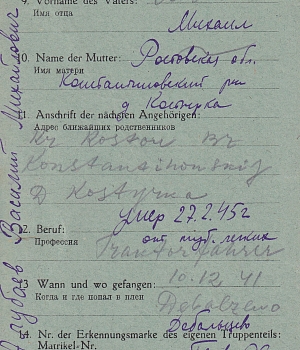 Vorname des Vaters:
Имя отца
Михаил
10. Name der Mutter: Ростовская обл.
Имя матери
Константиновский рн
д Костырка
11. Anschrift der nächsten Angehörigen:
Адрес ближайших родственников
Kr Rostow Br
Konstantinowskij
D Kostyrka
умер 27.2.45г
12. Beruf:
Профессия
от туб. легких
Traktorfahrer
10.12.41
13 Wann und wo gefangen:
Когда и где попал в плен
Debalzewo
Дебальцево
14. Nr. der Erkennungsmarke des eigenen Truppenteils:
Matrikel-Nr.
Василий Михайлович